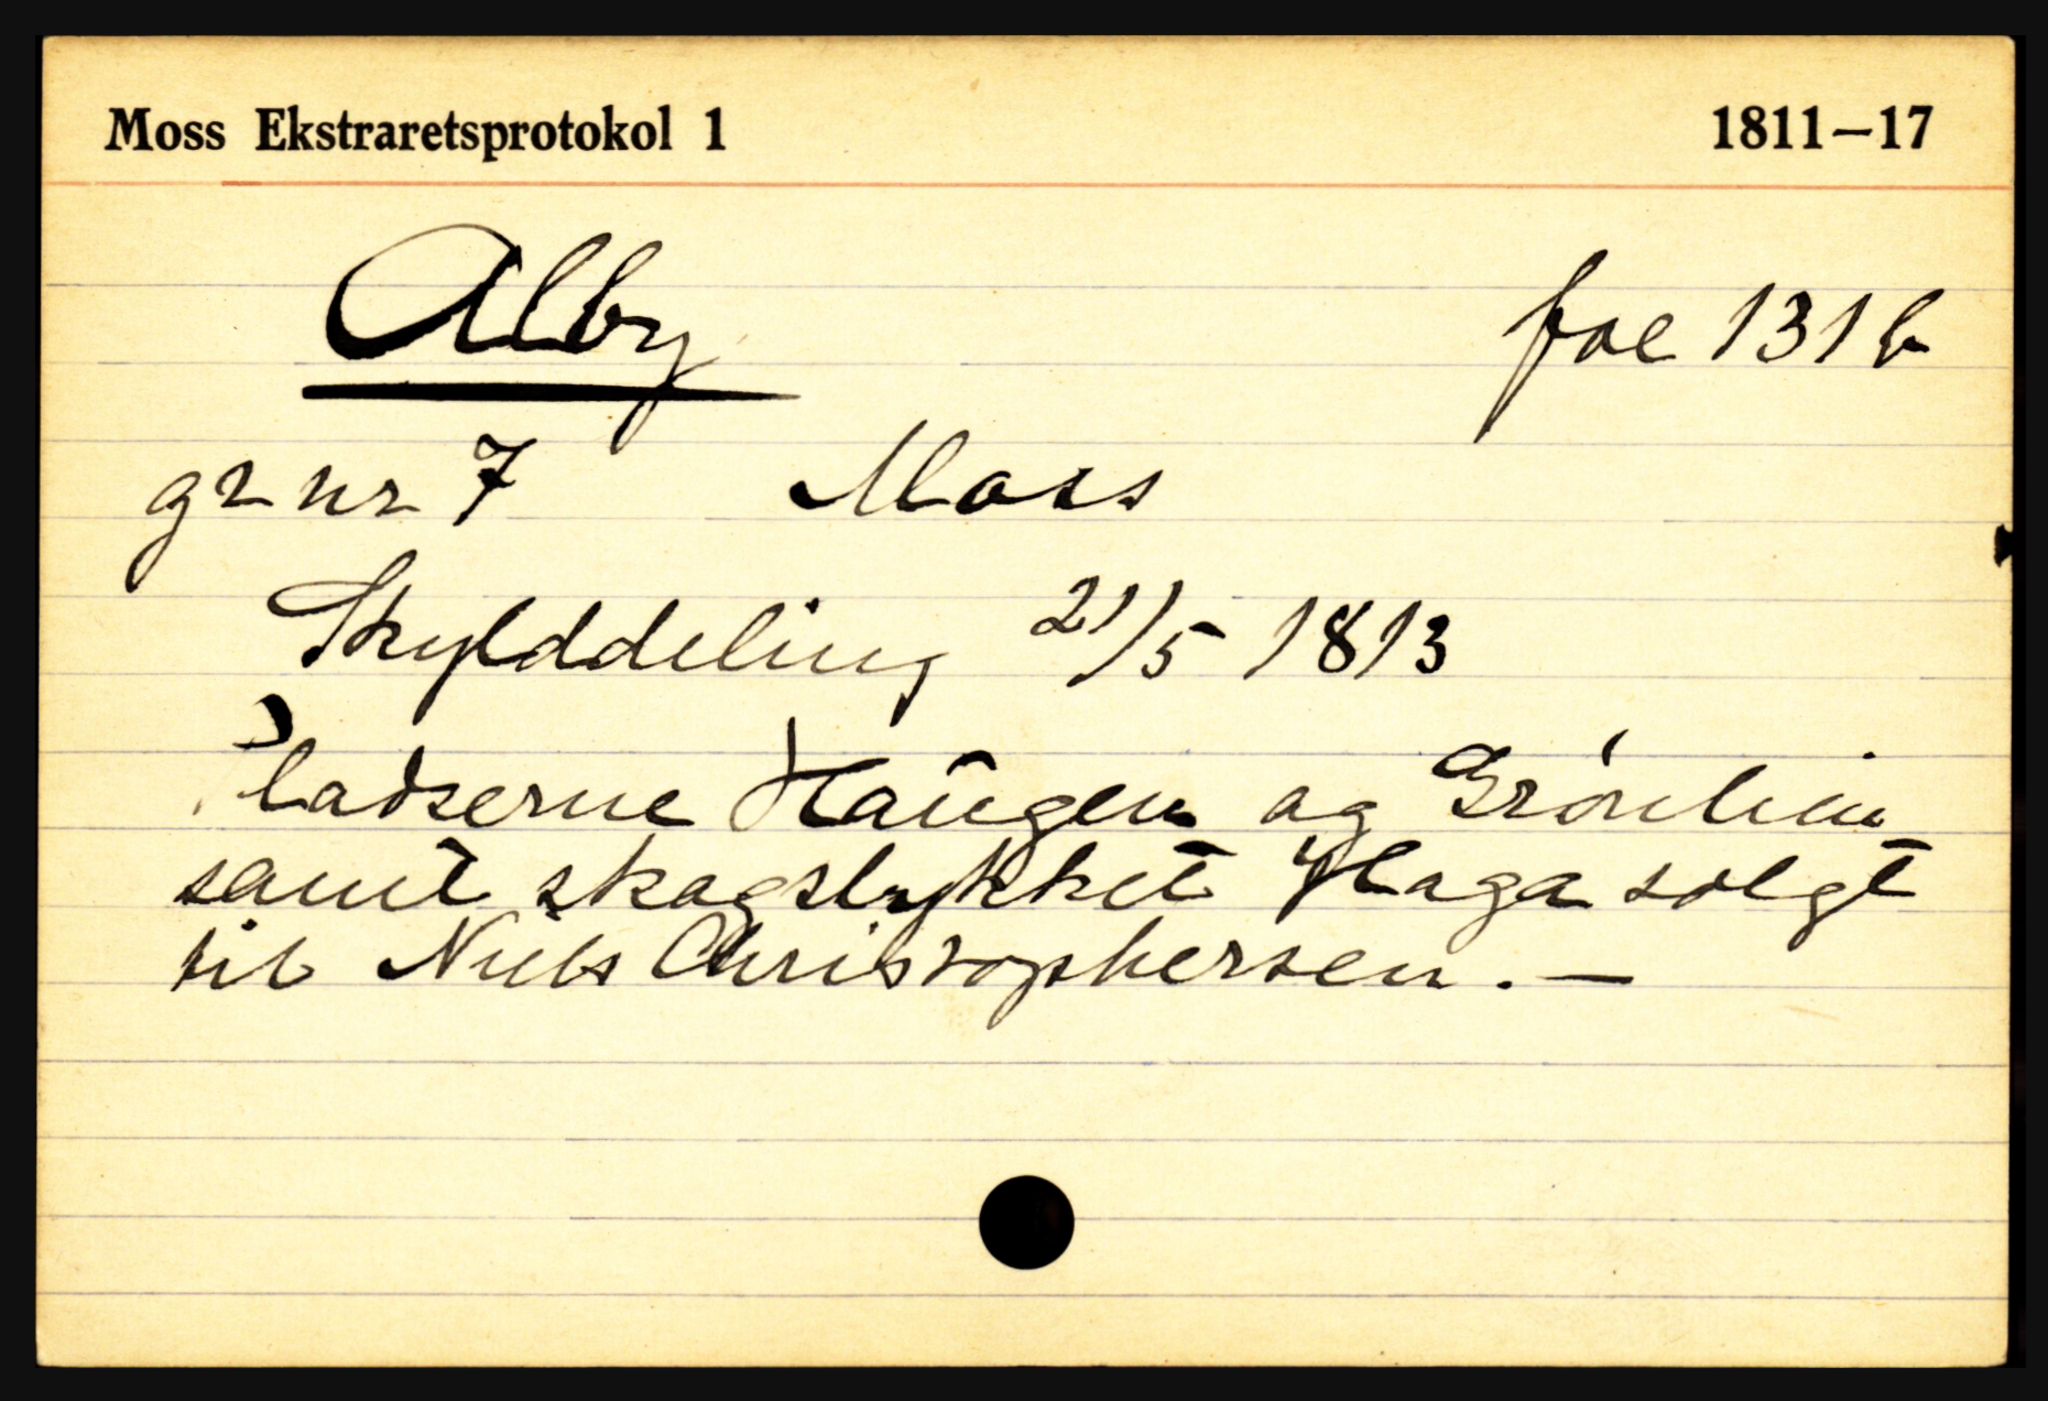 Moss Ekstraretsprotokol 1 1811–17
Alby fol 131 b
gr nr 7 Moss
Skylddeling 21/5 1813
Pladserne Haugen og Grónlien
samt skogstykket Haga solgt
til Niels Christophersen. —